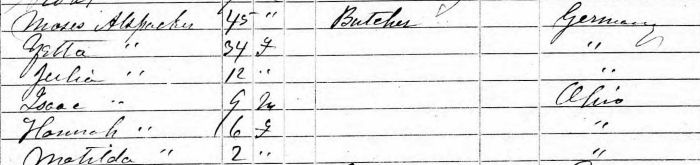 Moses Alspacher 45 " Butcher Germany
Yetta " 34 F "
Julia " 12 " "
Isaac " 9 M Ohio
Hannah " 6 F "
Matilda " 2 " "